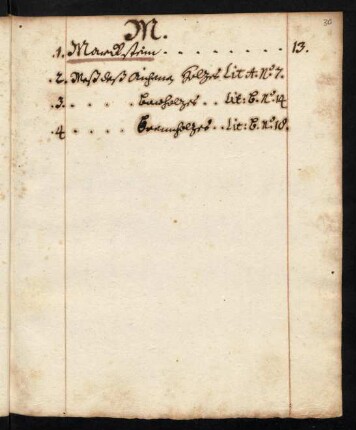 30
M.
.1. Marckstein . . . . . . . . 13.
.2. Maß deß Aichenen Holzes Lit: A: No 7.
.3 . . . . Bauholzes . . Lit: B: No 14
.4 . . . . Brennholzes . . Lit: B: No 18.